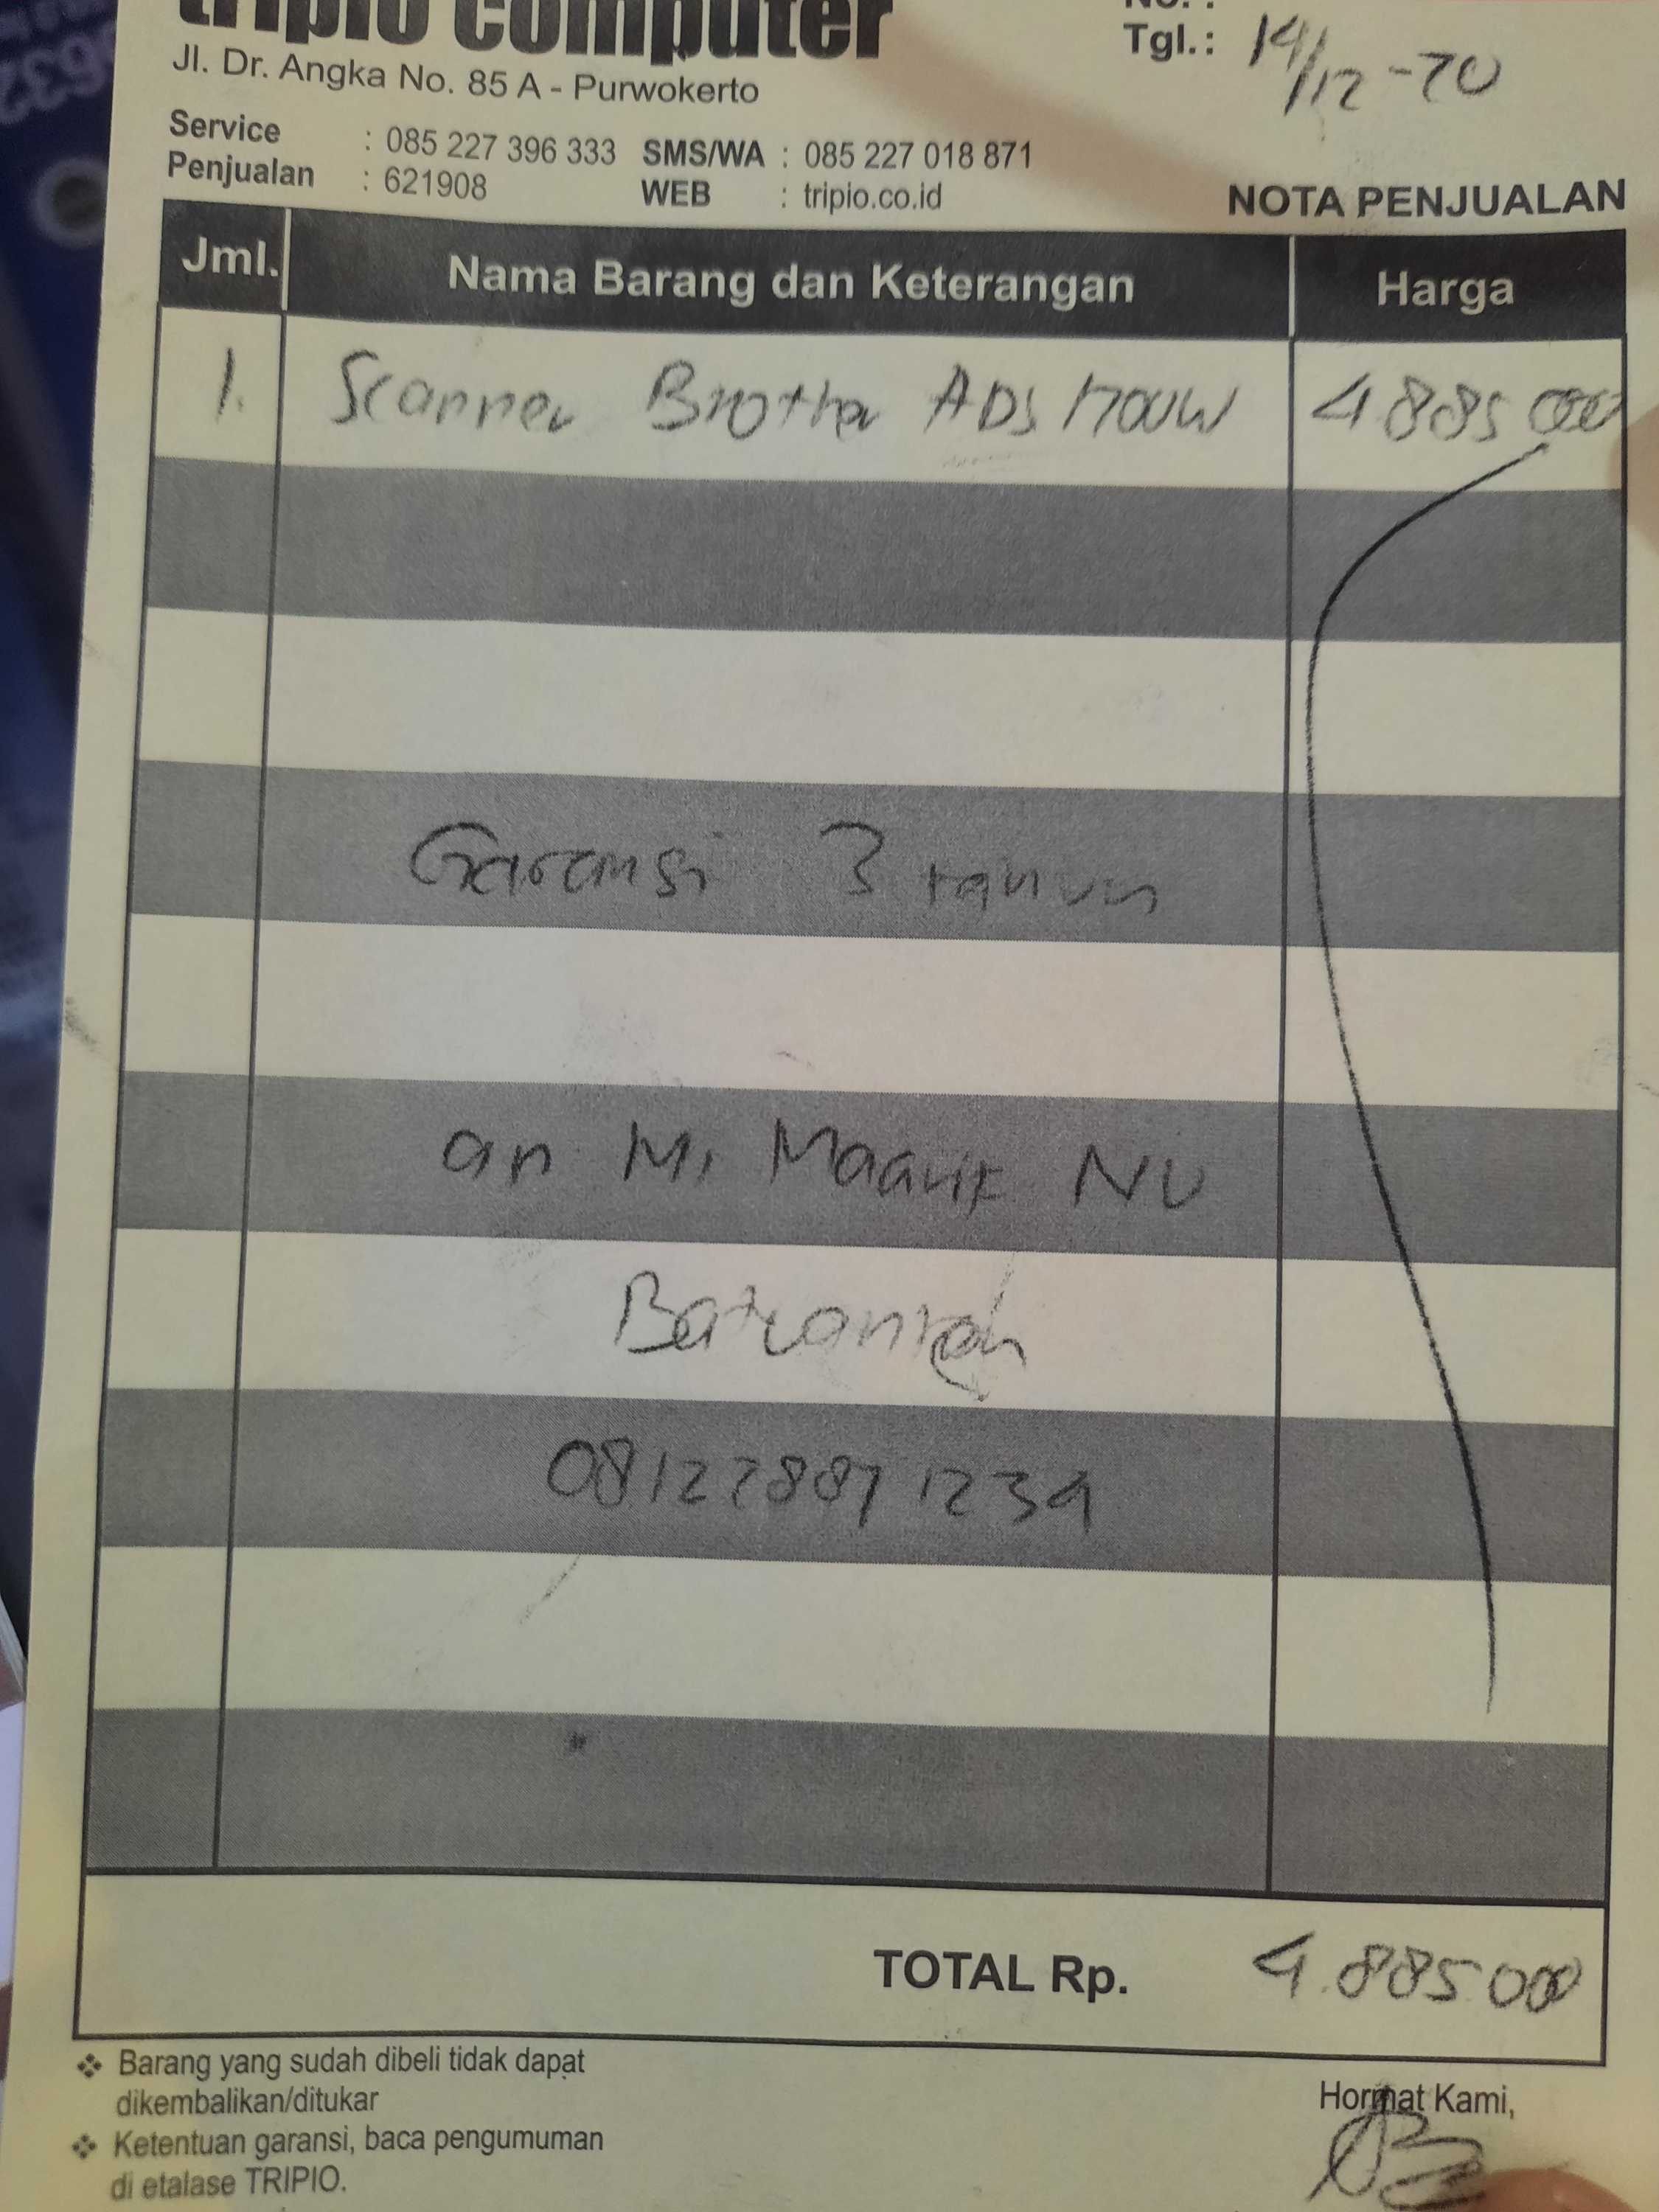 tripio computer
No. :
Jl. Dr. Angka No. 85 A - Purwokerto
Tgl. : 14/12-20
Service : 085 227 396 333 SMS/WA : 085 227 018 871
Penjualan : 621908 WEB : tripio.co.id
NOTA PENJUALAN
Jml. Nama Barang dan Keterangan Harga
1. Scanner Brother ADS 1700W 4885000
Garansi 3 tahun
an Mi Maarif NU
081228871239
TOTAL Rp. 4.885.000
❖ Barang yang sudah dibeli tidak dapat
dikembalikan/ditukar
❖ Ketentuan garansi, baca pengumuman
di etalase TRIPIO.
Hormat Kami,